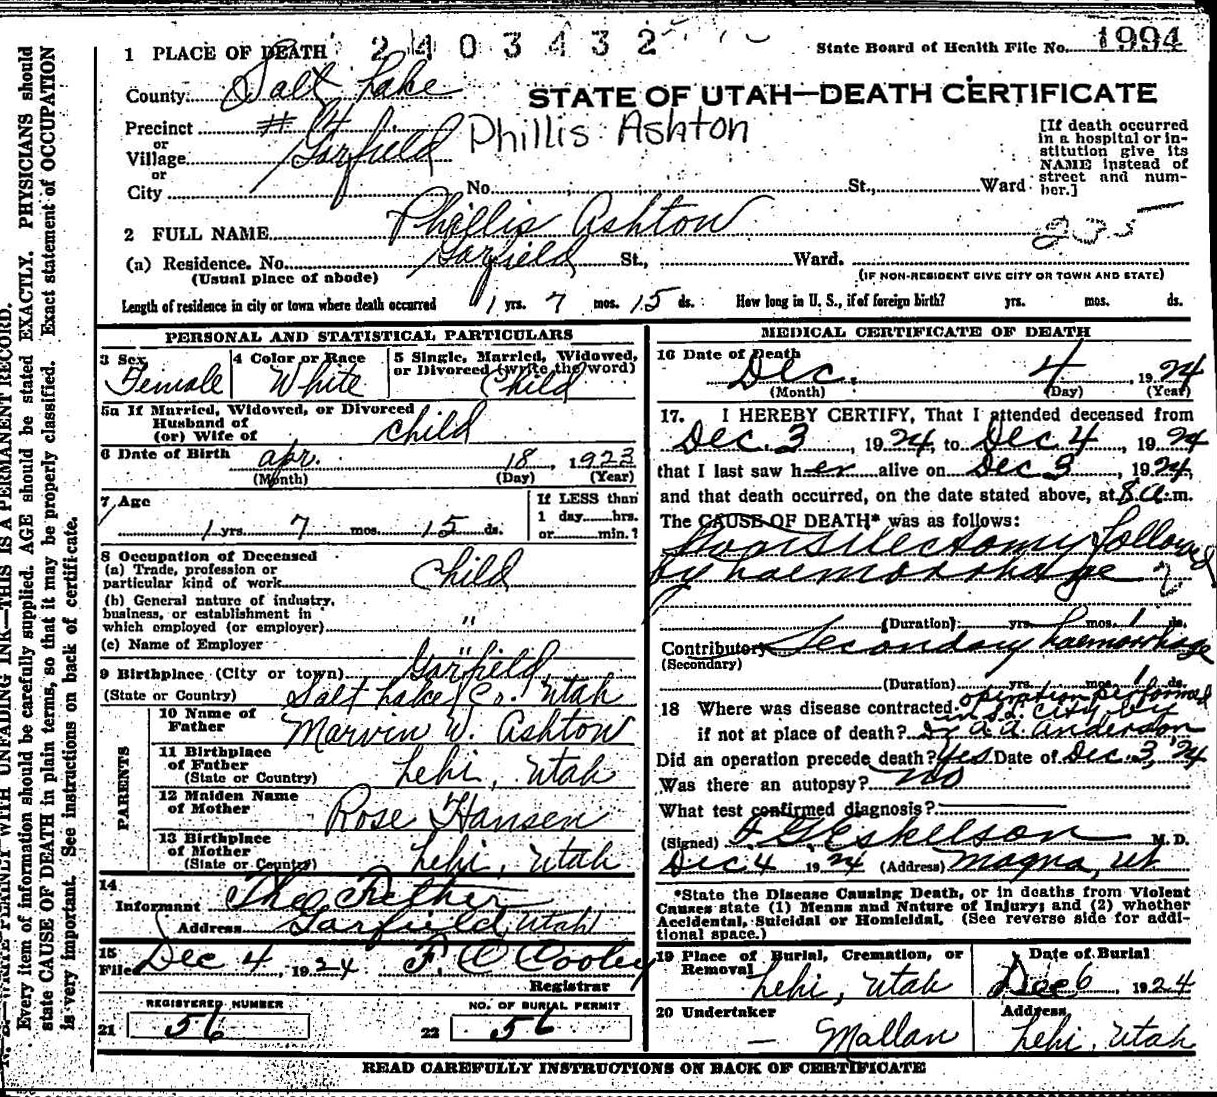 1 PLACE OF DEATH 2403432
State Board of Health File No. 1994
County Salt Lake
STATE OF UTAH—DEATH CERTIFICATE
Precinct #14
or
Village Garfield
Phillis Ashton
or
City No. St., Ward
[If death occurred
in a hospital or in-
stitution give its
NAME instead of
street and num-
ber.]
2 FULL NAME Phillis Ashton
235
(a) Residence. No. Garfield St., Ward.
(Usual place of abode)
(IF NON-RESIDENT GIVE CITY OR TOWN AND STATE)
Length of residence in city or town where death occurred 1 yrs. 7 mos. 15 ds. How long in U. S., if of foreign birth? yrs. mos. ds.
PERSONAL AND STATISTICAL PARTICULARS
3 Sex Female
4 Color or Race White
5 Single, Married, Widowed,
or Divorced (write the word) Child
5a If Married, Widowed, or Divorced
Husband of
(or) Wife of child
6 Date of Birth Apr. 18, 1923
(Month) (Day) (Year)
7 Age
1 yrs. 7 mos. 15 ds.
If LESS than
1 day hrs.
or min.?
8 Occupation of Deceased
(a) Trade, profession or
particular kind of work Child
(b) General nature of industry,
business, or establishment in
which employed (or employer) "
(c) Name of Employer "
9 Birthplace (City or town) Garfield,
(State or Country) Salt Lake Co. Utah
PARENTS
10 Name of
Father Marvin W. Ashton
11 Birthplace
of Father
(State or Country) Lehi, Utah
12 Maiden Name
of Mother Rose Hansen
13 Birthplace
of Mother
(State or Country) Lehi, Utah
14
Informant The Father
Address Garfield, Utah
15
Filed Dec 4, 1924 F. C. Cooley
Registrar
REGISTERED NUMBER
21 56
NO. OF BURIAL PERMIT
22 56
MEDICAL CERTIFICATE OF DEATH
16 Date of Death
Dec. 4, 1924
(Month) (Day) (Year)
17. I HEREBY CERTIFY, That I attended deceased from
Dec. 3, 1924, to Dec 4, 1924
that I last saw her alive on Dec 3, 1924,
and that death occurred, on the date stated above, at 8 a.m.
The CAUSE OF DEATH* was as follows:
Tonsilectomy followed
by haemorrhage
(Duration) yrs. mos. 1 ds.
Contributory Secondary haemorrhage
(Secondary)
(Duration) yrs. mos. 1 ds.
18 Where was disease contracted operation performed
if not at place of death? in S.L. City by Dr. A. A. Anderson
Did an operation precede death? Yes Date of Dec. 3, '24
Was there an autopsy? no
What test confirmed diagnosis?
(Signed) Eskelson M. D.
Dec 4 1924 (Address) Magna, Ut
*State the Disease Causing Death, or in deaths from Violent
Causes state (1) Menns and Nature of Injury; and (2) whether
Accidental, Suicidal or Homicidal. (See reverse side for addi-
tional space.)
19 Place of Burial, Cremation, or
Removal Lehi, Utah
Date of Burial
Dec 6, 1924
20 Undertaker
— Mallan
Address
Lehi, Utah
READ CAREFULLY INSTRUCTIONS ON BACK OF CERTIFICATE
N. B.—WRITE PLAINLY WITH UNFADING INK—THIS IS A PERMANENT RECORD.
Every item of information should be carefully supplied. AGE should be stated EXACTLY. PHYSICIANS should
state CAUSE OF DEATH in plain terms, so that it may be properly classified. Exact statement of OCCUPATION
is very important. See instructions on back of certificate.